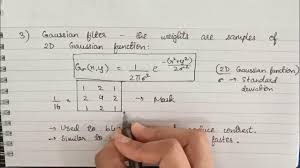 3) Gaussian filter - the weights are samples of
2D Gaussian function:
Gσ(x,y) = 1/2πσ² e^-(x²+y²)/2σ² (2D Gaussian function)
σ → Standard
deviation
1/16 = 1 2 1 → Mask
2 4 2
1 2 1
→ Used to reduce contrast.
→ Similar to faster.